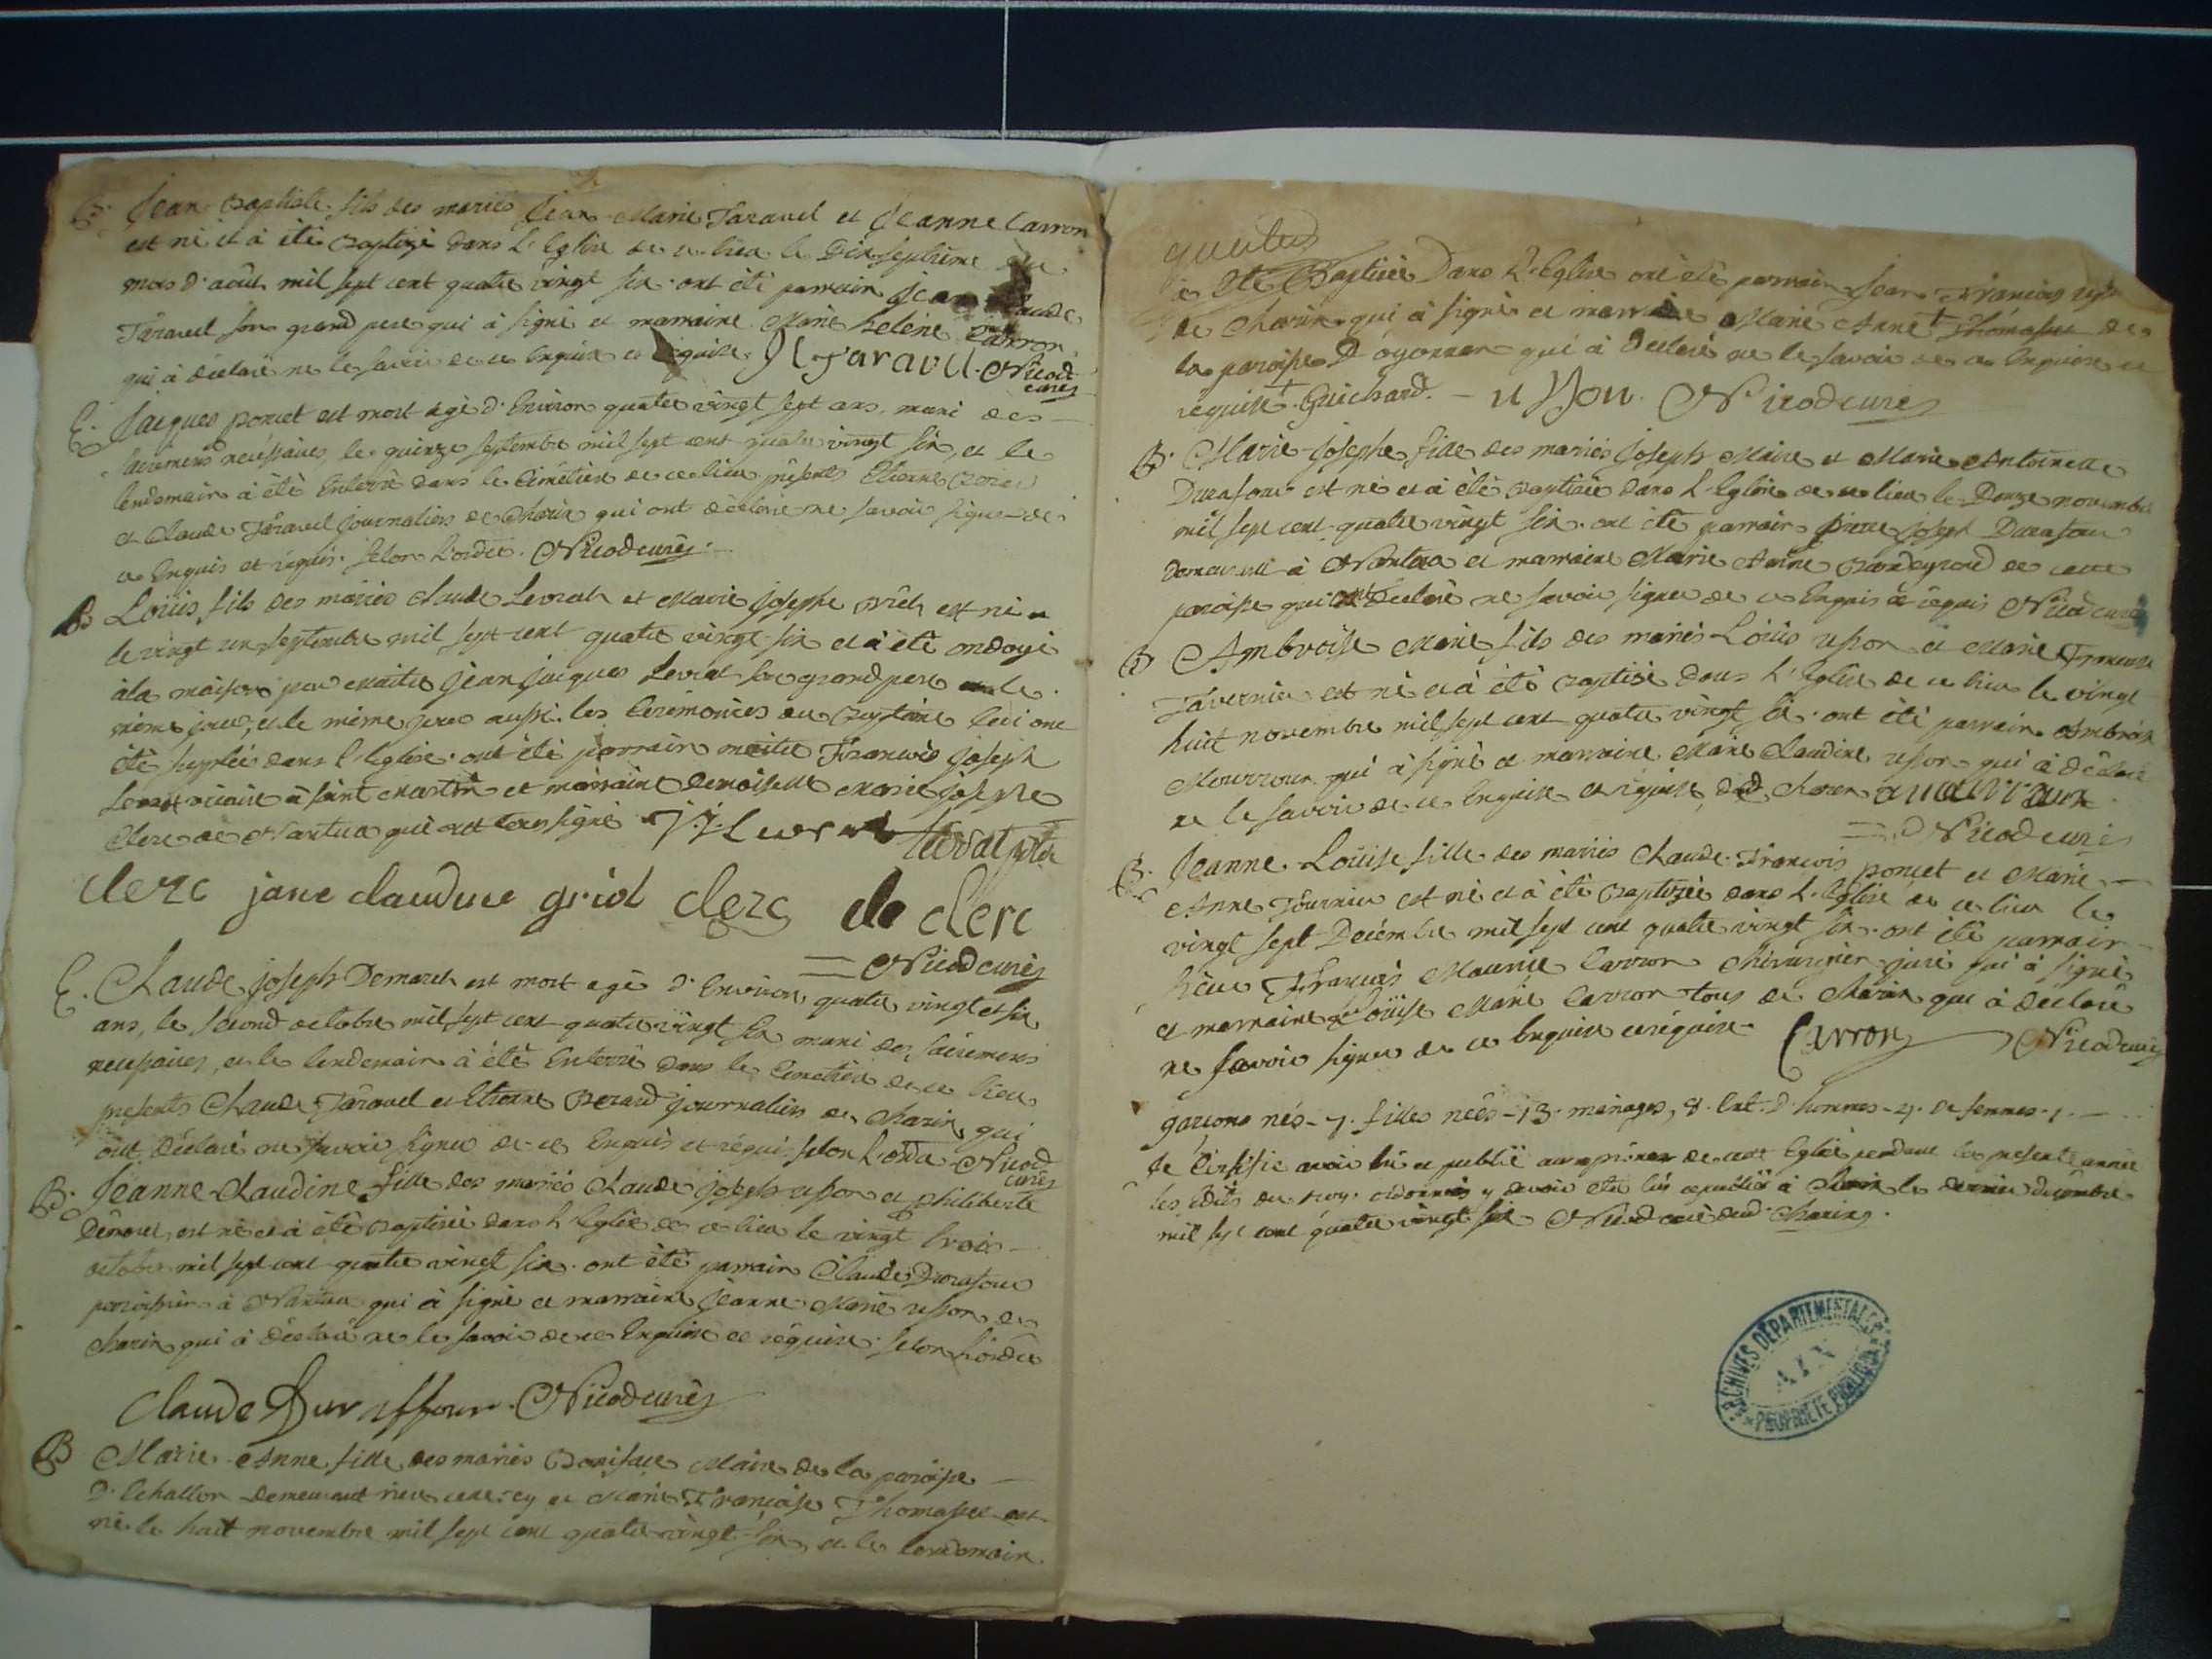 B. Jean Baptiste fils des mariés Jean Marie Taravel et Jeanne Carron
est né et à été Baptizé dans L'Eglise de ce lieu le Dix septieme du
mois d'août mil sept cent quatre vingt six. ont été parrain Jean Claude
Taravel son grand pere qui à signé et marraine Marie helene Carron
qui à déclaré ne le savoir de ce Enquise et requise. JC Taravel. Nicod
curé
E. Jacques poncet est mort agé d'Environ quatre vingt sept ans, muni des
sacremens nécéssaires, le quinze septembre mil sept cent quatre vingt six, et le
lendemain à été Enterré dans le Cimétiere de ce lieu présents Etienne
et Claude Taravel journaliers de Charix qui ont déclaré ne savoir signer de
ce Enquis et réquis. selon L'ordre. Nicod curé.
B Loüis fils des mariés Claude Levrat et Marie Josephe est né
le vingt un septembre mil sept cent quatre vingt six et à été ondoyé
à la maison par maitre Jean Jacques Levrat son grand pere le
même jour, et le même jour aussi les Cérémonies du Baptême lui ont
été supplées dans l'Eglise. ont été parrain maitre François Joseph
Levrat vicaire à saint Martin et marraine Demoiselle Marie josephe
Clerc de Nantua qui ont tous signé J.J. Levrat Levrat ptre
clerc jane claudine griot clerc de clerc
= Nicod curé
E. Claude joseph Demarch est mort agé d'Environ quatre vingt et six
ans, le second octobre mil sept cent quatre vingt six muni des sacremens
necessaires, et le lendemain à été Enterré dans le Cimetiere de ce lieu
presents Claude Taravel et Etienne Berard journaliers de Charix qui
ont déclaré ne savoir signer de ce Enquis et réquis selon L'ordre Nicod
curé
B. Jeanne Claudine fille des mariés Claude joseph usson et philiberte
est né et à été Baptisée dans L'Eglise de ce lieu le vingt trois
octobre mil sept cent quatre vingt six. ont été parrain Claude Durafour
à Nantua qui à signé et marraine Jeanne Marie usson de
Charix qui à déclaré ne le savoir de ce Enquise et réquise selon L'ordre
Claude Duraffour. Nicod curé
B Marie Anne fille des mariés Boniface Maire de la paroisse
D'Echallon demeurant et Marie Françoise Thomasset est
né le huit novembre mil sept cent quatre vingt six, et le lendemain
à Eté Baptisée Dans L'Eglise ont été parrain Jean François
de Charix qui à signé et marraine Marie Anne Thomasset de
la paroisse D'oyonnax qui à Declaré ne le savoir de ce Enquise et
requise Guichard. Nicod curé
B. Marie josephe fille des mariés Joseph Maire et Marie Antoinette
Durafour est né et à été Baptisée dans L'Eglise de ce lieu le Douze novembre
mil sept cent quatre vingt six. ont été parrain pierre joseph Durafour
demeurant à Nantua et marraine Marie Anne de cette
paroisse qui ont déclaré ne savoir signer de ce Enquis et réquis Nicod curé
B Ambroise Marie fils des mariés Loüis usson et Marie Françoise
Tavernier est né et à été Baptisé dans L'Eglise de ce lieu le vingt
huit novembre mil sept cent quatre vingt six. ont été parrain Ambroise
qui à signé et marraine Marie Claudine usson qui à déclaré
ne le savoir de ce Enquise et réquise, dud. Charix
= Nicod curé
B. Jeanne Loüise fille des mariés Claude François poncet et Marie
Anne Tournier est né et à été Baptizée dans L'Eglise de ce lieu le
vingt sept Décembre mil sept cent quatre vingt six. ont été parrain
sieur François Maurice Carron Chirurgien juré qui à signé
et marraine Loüise Marie Carron tous de Charix qui à déclaré
ne savoir signer de ce Enquise et réquise. Carron Nicod curé
garçons nés - 7. filles nées - 13. mariages, 8. Ent. D'hommes - 4. de femmes. 1.
Je Certifie avoir lû et publié au prône de cette Eglise pendant la presente année
les Edits du Roy ordonnés y devoir etre lûs et publiés à Charix le dernier decembre
mil sept cent quatre vingt six Nicod curé dud. Charix.
ARCHIVES DEPARTEMENTALES
AIN
PROPRIETE PUBLIQUE